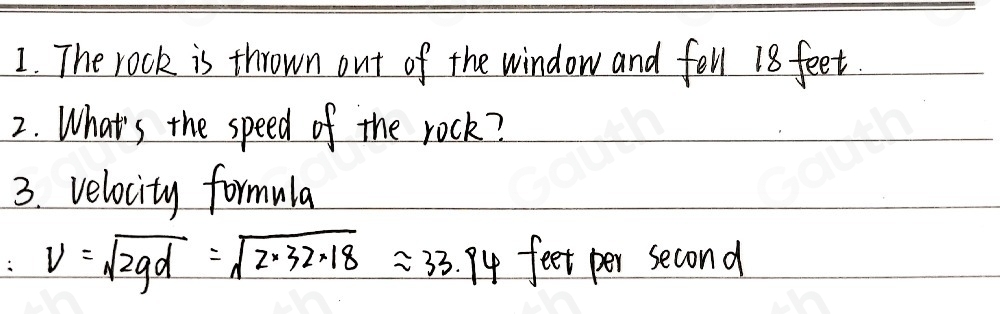 1. The rock is thrown out of the window and fell 18 feet.
2. What's the speed of the rock?
3. Velocity formula
: V = √2gd = √2×32×18 ≈ 33.94 feet per second